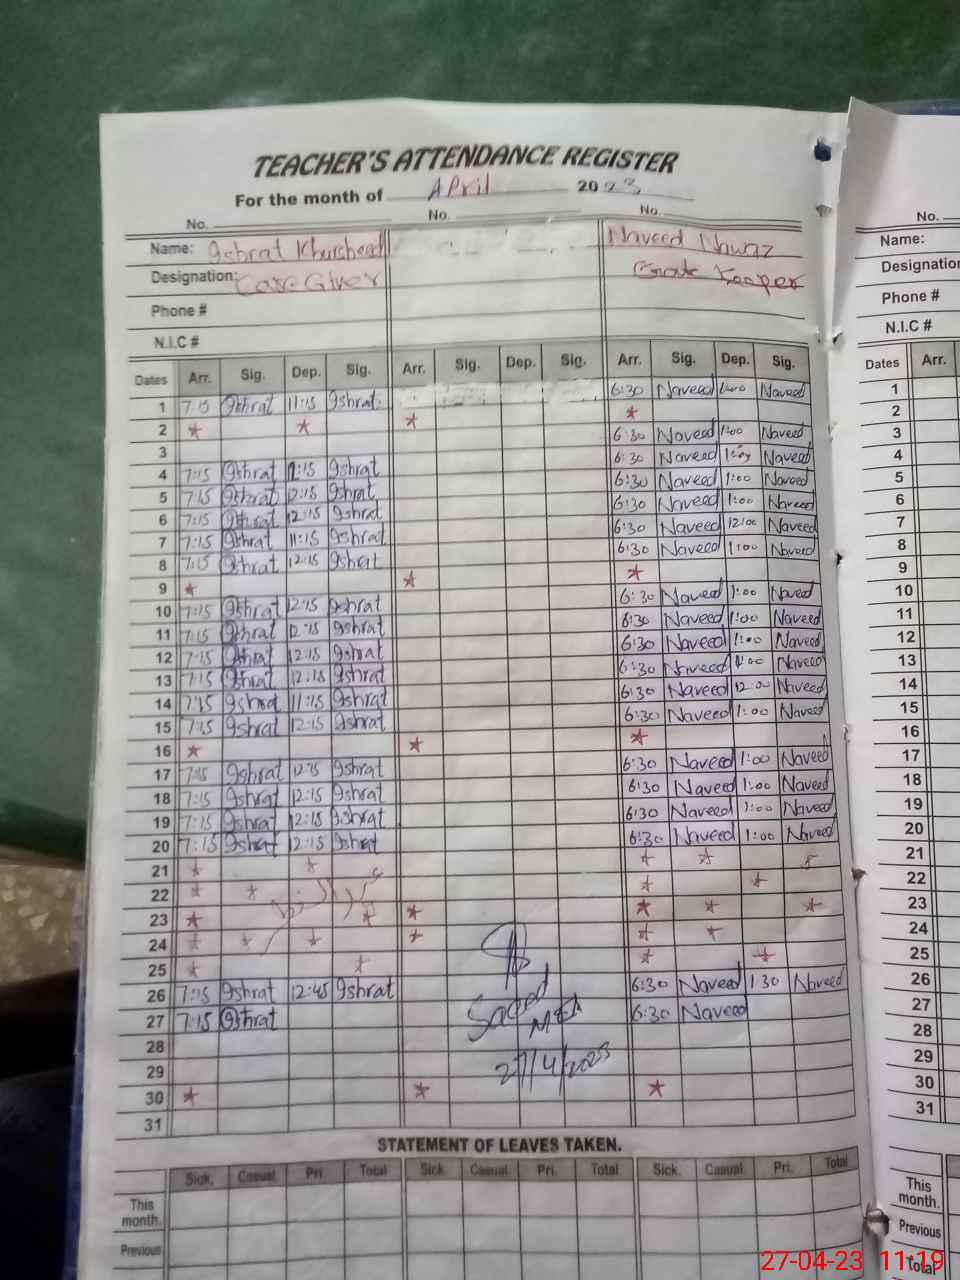 TEACHER'S ATTENDANCE REGISTER
For the month of April 2023
No. No. No.
Name: Ishrat Khursheed Naveed Nawaz
Designation: Care Giver Gate Keeper
Phone #
N.I.C #
Dates Arr. Sig. Dep. Sig. Arr. Sig. Dep. Sig. Arr. Sig. Dep. Sig.
1 7:15 Ishrat 11:15 Ishrat 6:30 Naveed Naveed
2 * * * *
3 6:30 Naveed 1:00 Naveed
4 7:15 Ishrat 12:15 Ishrat 6:30 Naveed Naveed
5 7:15 Ishrat 12:15 Ishrat 6:30 Naveed 1:00 Naveed
6 7:15 Ishrat 12:15 Ishrat 6:30 Naveed 1:00 Naveed
7 7:15 Ishrat 11:15 Ishrat 6:30 Naveed 12:00 Naveed
8 7:15 Ishrat 12:15 Ishrat 6:30 Naveed 1:00 Naveed
9 * * *
10 7:15 Ishrat 12:15 Ishrat 6:30 Naveed 1:00 Naveed
11 7:15 Ishrat 12:15 Ishrat 6:30 Naveed 1:00 Naveed
12 7:15 Ishrat 12:15 Ishrat 6:30 Naveed 1:00 Naveed
13 7:15 Ishrat 12:15 Ishrat 6:30 Naveed Naveed
14 7:15 Ishrat 11:15 Ishrat 6:30 Naveed 12:00 Naveed
15 7:15 Ishrat 12:15 Ishrat 6:30 Naveed 1:00 Naveed
16 * * *
17 7:15 Ishrat 12:15 Ishrat 6:30 Naveed 1:00 Naveed
18 7:15 Ishrat 12:15 Ishrat 6:30 Naveed 1:00 Naveed
19 7:15 Ishrat 12:15 Ishrat 6:30 Naveed 1:00 Naveed
20 7:15 Ishrat 12:15 Ishrat 6:30 Naveed 1:00 Naveed
21 * * * * *
22 * * * *
23 * * * * * *
24 * * * * * *
25 * * * *
26 7:15 Ishrat 12:45 Ishrat 6:30 Naveed 1:30 Naveed
27 7:15 Ishrat 6:30 Naveed
28
29
30 * * *
31
Saeed
MEA
27/4/2023
STATEMENT OF LEAVES TAKEN.
Sick. Casual Pri. Total Sick. Casual Pri. Total Sick. Casual Pri. Total
This month.
Previous
No.
Name:
Designation
Phone #
N.I.C #
Dates Arr.
1
2
3
4
5
6
7
8
9
10
11
12
13
14
15
16
17
18
19
20
21
22
23
24
25
26
27
28
29
30
31
This month.
Previous
Total
27-04-23 11:19